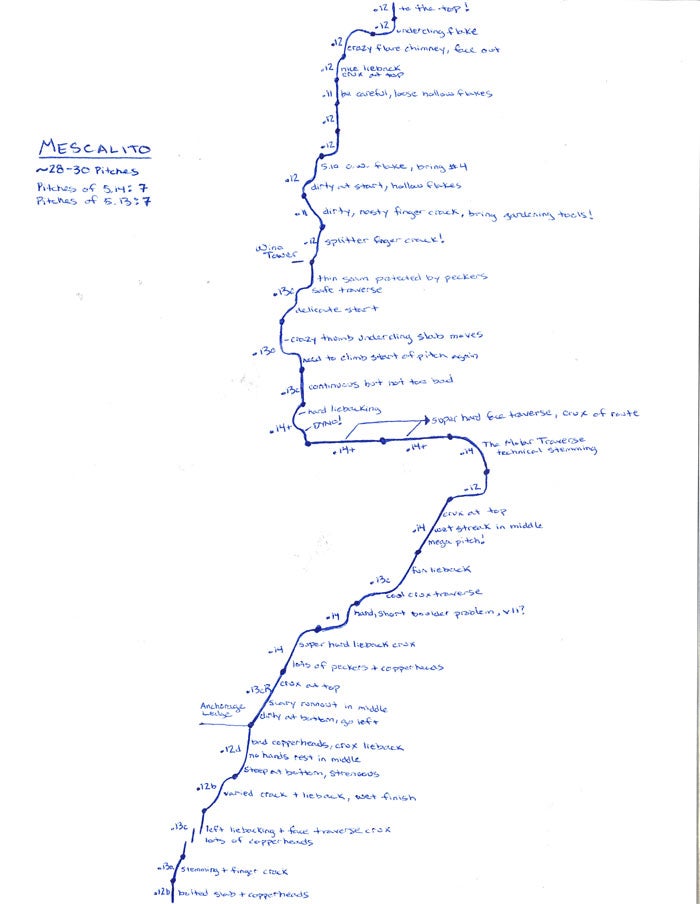 to the top!
.12
.12
undercling flake
.12
crazy flare chimney, face out
.12
nice lieback
crux at top
.11
be careful, loose hollow flakes
.12
MESCALITO
~28-30 Pitches
Pitches of 5.14: 7
Pitches of 5.13: 7
5.10 o.w. flake, bring #4
.12
dirty at start, hollow flakes
.11
dirty, nasty finger crack, bring gardening tools!
.12
splitter finger crack!
Wino
Tower
thin seam protected by peckers
.13c
safe traverse
delicate start
crazy thumb undercling slab moves
.13c
need to climb start of pitch again
.13c
continuous but not too bad
hard liebacking
DYNO!
super hard face traverse, crux of route
.14+
.14+
.14+
.14
The Molar Traverse
technical stemming
.12
crux at top
.14
wet streak in middle
mega pitch!
fun lieback
.13c
cool crux traverse
.14
hard, short boulder problem, v11?
.14
super hard lieback crux
lots of peckers + copperheads
.13cR
crux at top
Anchorage
Ledge
scary runout in middle
dirty at bottom, go left
.12d
bad copperheads, crux lieback
no hands rest in middle
steep at bottom, strenuous
.12b
varied crack + lieback, wet finish
.13c
left liebacking + face traverse crux
lots of copperheads
.13a
stemming + finger crack
.12b
bolted slab + copperheads